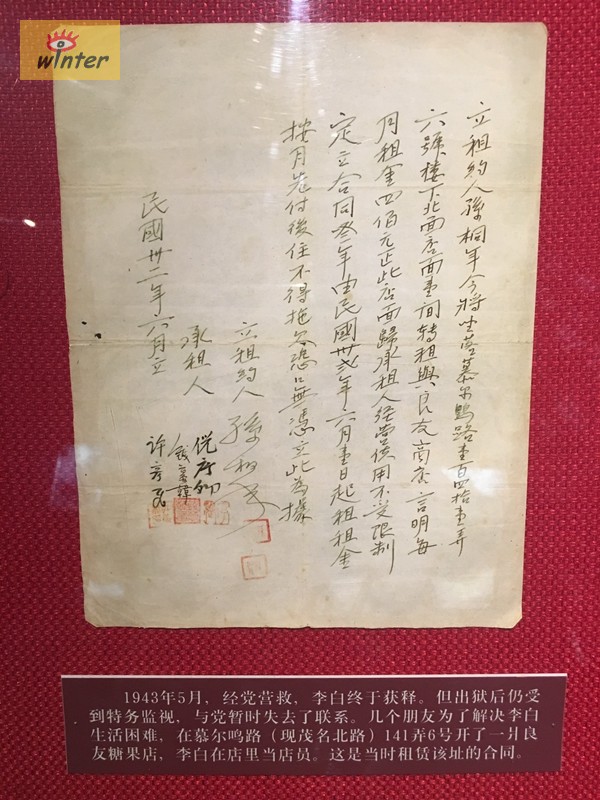 winter
立租約人孫桐年今將坐落慕尔鳴路壹百四拾壹弄
六號樓下北面店面壹間轉租與良友商店言明每
月租金四佰元正此店面歸承租人经营使用不受限制
定立合同叁年由民國卅弍年六月壹日起租租金
按月先付後住不得拖欠恐口無憑立此為據
立租約人 孫桐年
承租人
許彥
民國卅二年六月立
1943年5月，经党营救，李白终于获释。但出狱后仍受
到特务监视，与党暂时失去了联系。几个朋友为了解决李白
生活困难，在慕尔鸣路（现茂名北路）141弄6号开了一爿良
友糖果店，李白在店里当店员。这是当时租赁该址的合同。